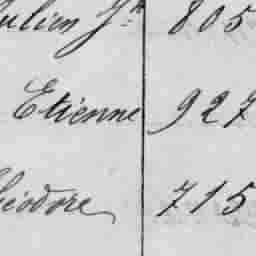 Julien Jh 805
Etienne 927
Théodore 715